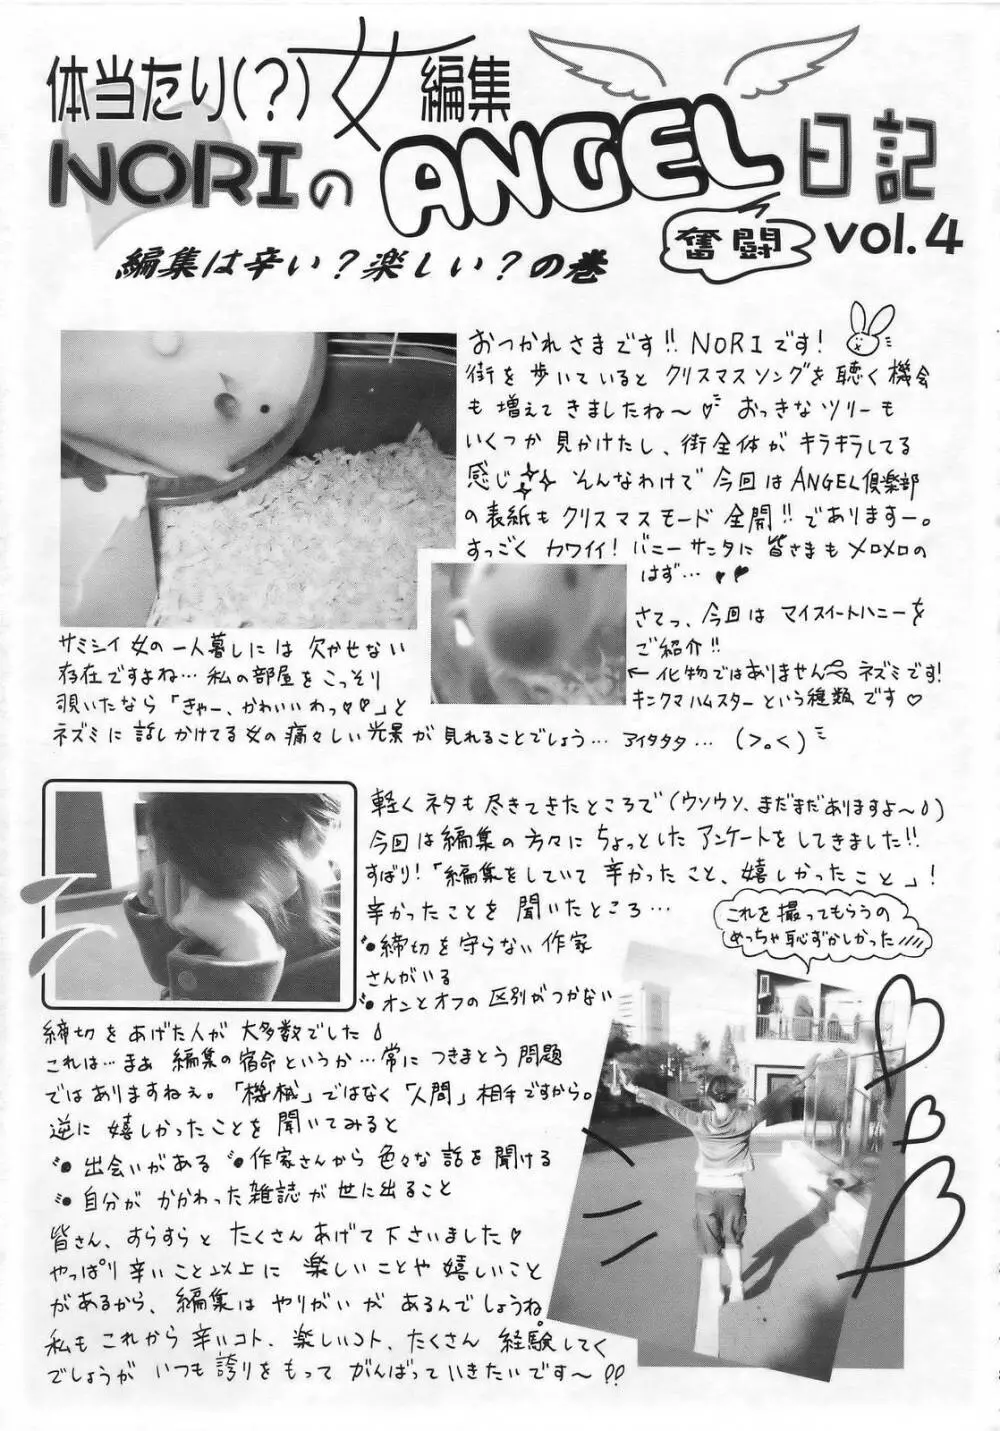 体当たり(?)女編集
NORIのANGEL日記
奮闘
vol.4
編集は辛い?楽しい?の巻
おつかれさまです!!NORIです!
街を歩いていると クリスマスソングを聴く機会
も増えてきましたね〜♡ おっきなツリーも
いくつか見かけたし、街全体が キラキラしてる
感じ そんなわけで 今回は ANGEL倶楽部
の表紙も クリスマスモード 全開!!でありますー。
すっごく カワイイ! バニーサンタに 皆さまも メロメロの
はず…♥♥
さてっ、今回は マイスイートハニーを
ご紹介!!
←化物ではありません ネズミです!
キンクマハムスターという種類です♡
サミシイ女の一人暮しには 欠かせない
存在ですよね… 私の部屋をこっそり
覗いたなら「きゃー、かわいいわっ♡♡」と
ネズミに話しかけてる女の痛々しい光景が 見れることでしょう… アイタタタ… (>。<)
軽くネタも尽きてきたところで(ウソウソ、まだまだありますよ〜)
今回は編集の方々に ちょっとした アンケートをしてきました!!
ずばり!「編集をしていて 辛かったこと、嬉しかったこと」!
辛かったことを 聞いたところ…
・締切を守らない作家
さんがいる
・オンとオフの区別がつかない
これを撮ってもらうの
めっちゃ恥ずかしかった
締切をあげた人が 大多数でした
これは…まぁ 編集の宿命というか…常に つきまとう問題
ではありますねぇ。「機械」ではなく「人間」相手ですから。
逆に嬉しかったことを 聞いてみると
・出会いがある ・作家さんから 色々な話を聞ける
・自分が かかわった雑誌が 世に出ること
皆さん、すらすらと たくさんあげて下さいました♡
やっぱり辛いこと以上に 楽しいことや嬉しいこと
があるから、編集は やりがいが あるんでしょうね。
私も これから 辛いコト、楽しいコト、たくさん 経験してく
でしょうが いつも誇りをもって がんばっていきたいです〜!!